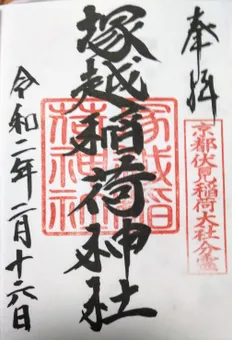 奉拝
京都伏見稲荷大社分霊
塚越稲荷神社
塚越稲
荷神社
令和二年二月十六日